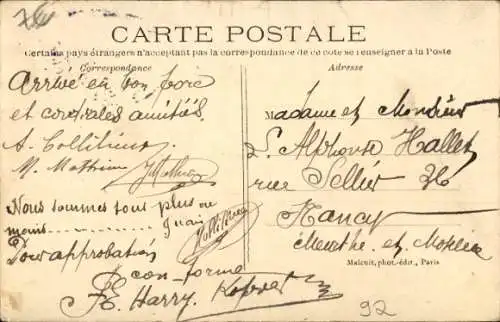 CARTE POSTALE
Certains pays étrangers n'acceptant pas la correspondance de ce côté se renseigner à la Poste
Correspondance
Adresse
Arrivé en bon
et cordiales amitiés
A. Collilieux
M. Mathieu
Nous sommes tous plus ou
moins
Pour approbation
con forme
Harry
Madame et Monsieur
Alphonse Hallet
rue Sellier 26
Nancy
Meurthe et Moselle
Malcuit, phot.-édit., Paris
92